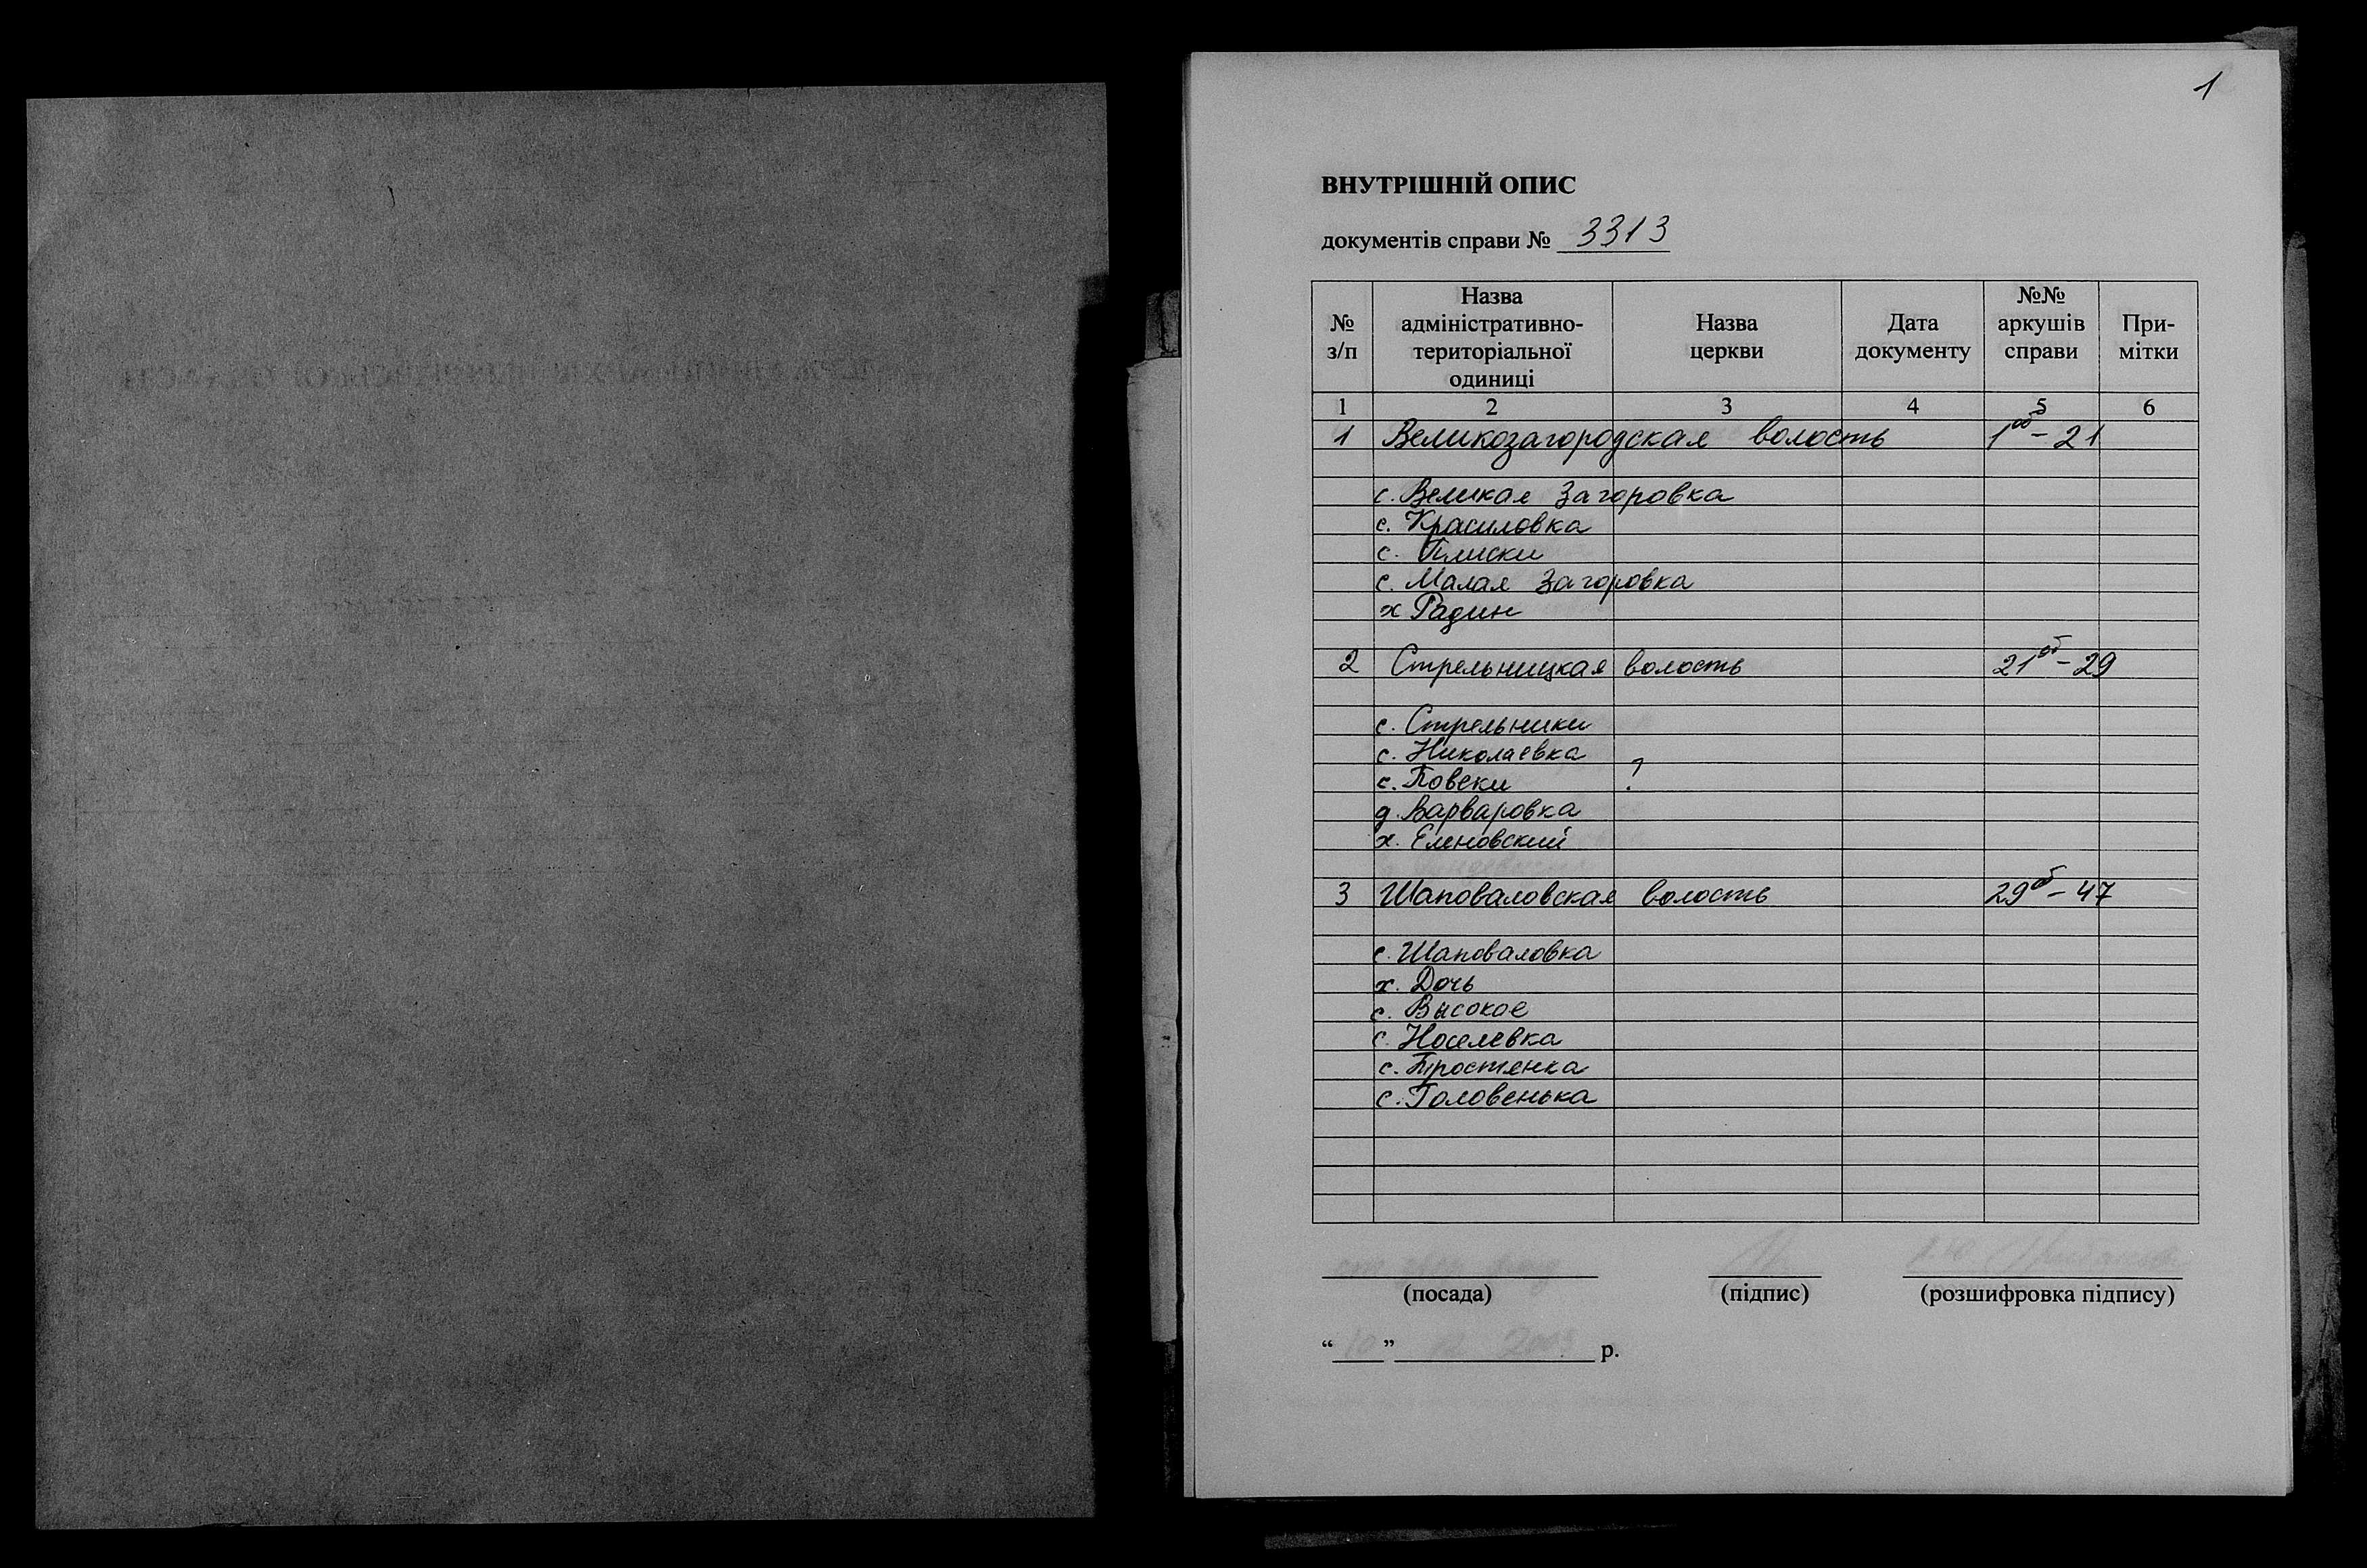 1
ВНУТРІШНІЙ ОПИС
документів справи № 3313
№ з/п
Назва адміністративно-територіальної одиниці
Назва церкви
Дата документу
№№ аркушів справи
Примітки
1 2 3 4 5 6
1 Великозагородская волость 1об - 21
с. Великая Загоровка
с. Красиловка
с. Плиски
с. Малая Загоровка
х Радин
2 Стрельницкая волость 21об - 29
с. Стрельники
с. Николаевка
с. Повски ?
д. Варваровка
х. Еленовский
3 Шаповаловская волость 29об - 47
с. Шаповаловка
х. Дочь
с. Высокое
с. Носелевка
с. Тростянка
с. Головенька
(посада) (підпис) (розшифровка підпису)
“ ” р.